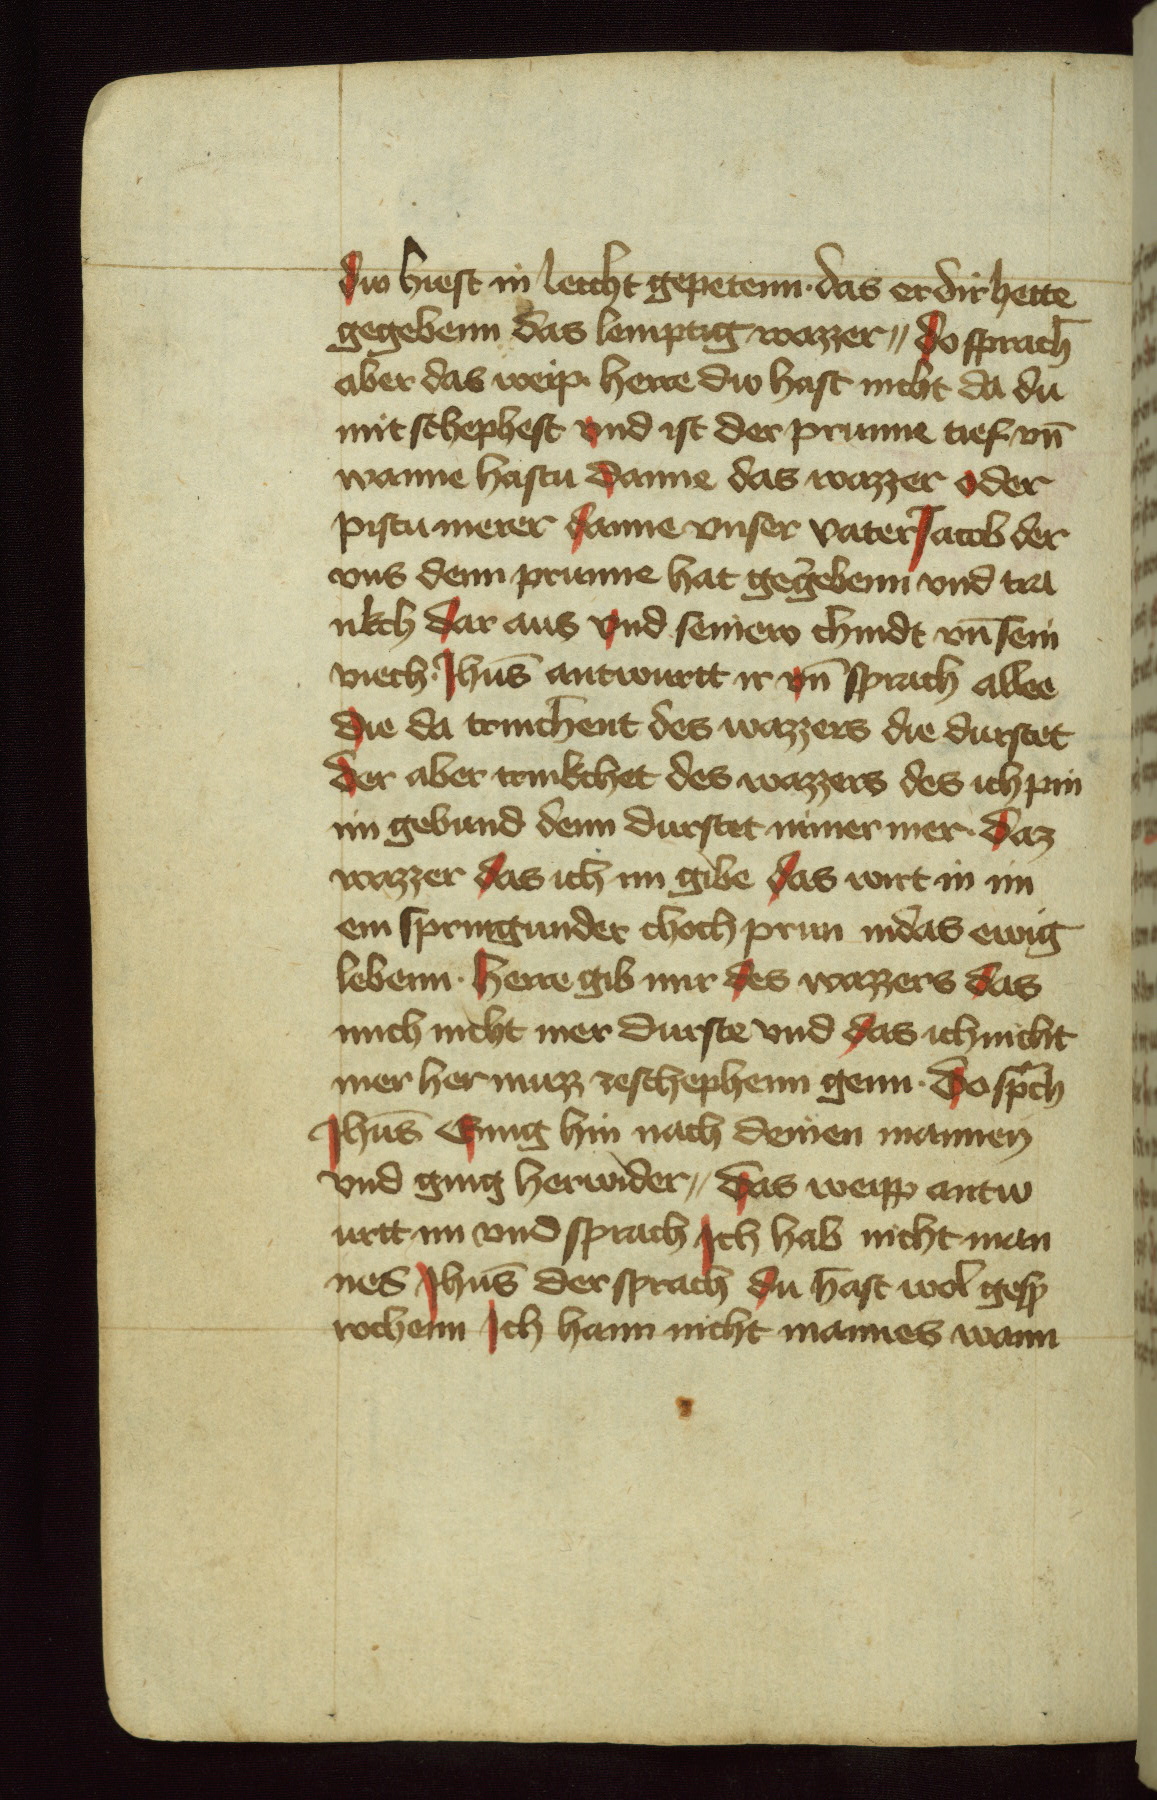 diw hiest in leicht gepetenn · das er dir hette
gegebenn das lemptig wazzer // do sprach
aber das weip · herre diw hast nicht da du
mit schephest vnd ist der prunne tief vn̄
wanne hastu danne das wazzer oder
pistu merer danne vnser vater Jacob der
vns denn prunne hat gegebenn vnd tra
nkch dar aus vnd seinew chindt vn̄ sein
viech · Jhus̄ antwurtt ir vn̄ sprach allee
die da trinchent des wazzers die durstet
der aber trinkchet des wazzers des ich pin
im gebund denn durstet nimer mer · daz
wazzer das ich im gibe das wirt in im
ein springunder choch prun in das ewig
lebenn · herre gib mir des wazzers das
mich nicht mer durste vnd das ich nicht
mer her muzz zeschephenn genn · Do sp̄ch
Jhus̄ Ging hin nach deinen mannen
vnd ging herwider // das weipp antw
urtt im vnd sprach Ich hab nicht man
nes Jhus̄ der sprach du hast wol gesp
rochenn Ich hann nicht mannes wann